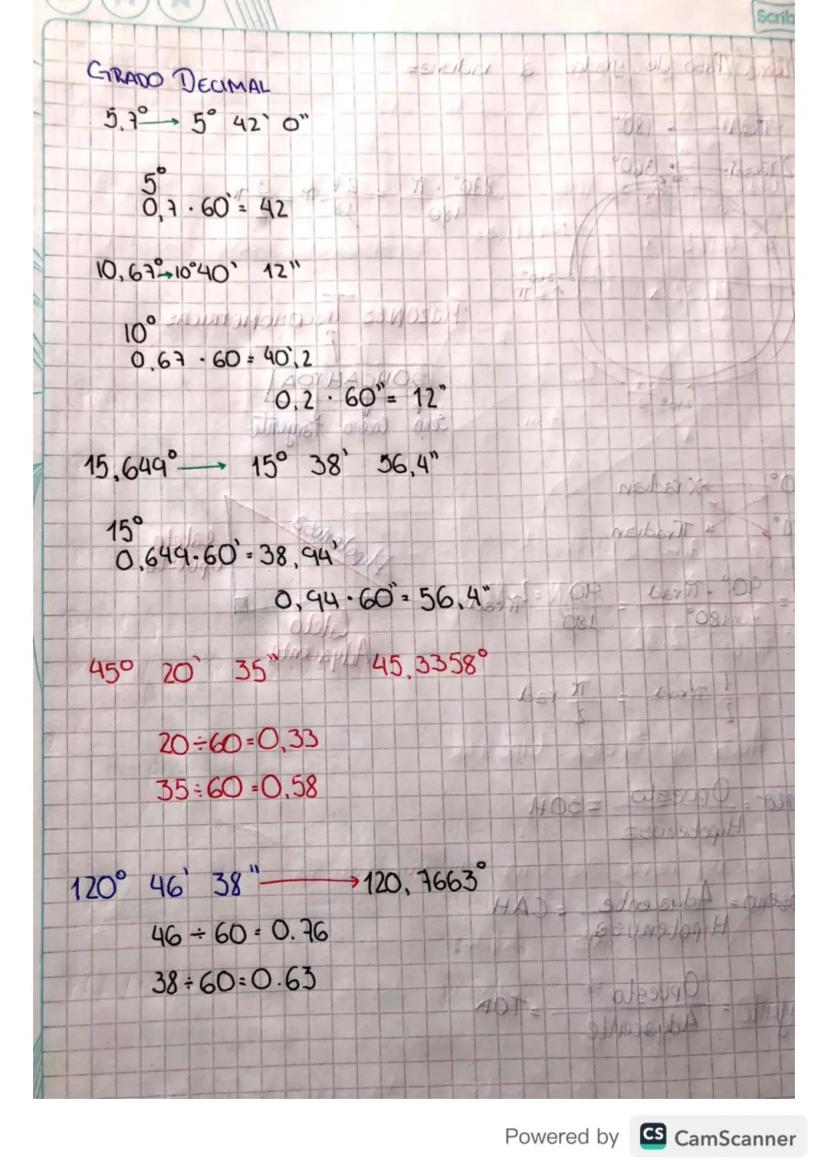 Scrib
GRADO DECIMAL
5,7° → 5° 42` 0"
5°
0,7 · 60` = 42
10,67° → 10° 40` 12"
10°
0.67 · 60 = 40`,2
0.2 · 60" = 12"
15,649° → 15° 38` 56,4"
15°
0,649 · 60` = 38,94`
0,94 · 60" = 56,4"
45° 20` 35" 45,3358°
20 ÷ 60 = 0,33
35 ÷ 60 = 0,58
120° 46` 38" → 120,7663°
46 ÷ 60 = 0.76
38 ÷ 60 = 0.63
Powered by CS CamScanner